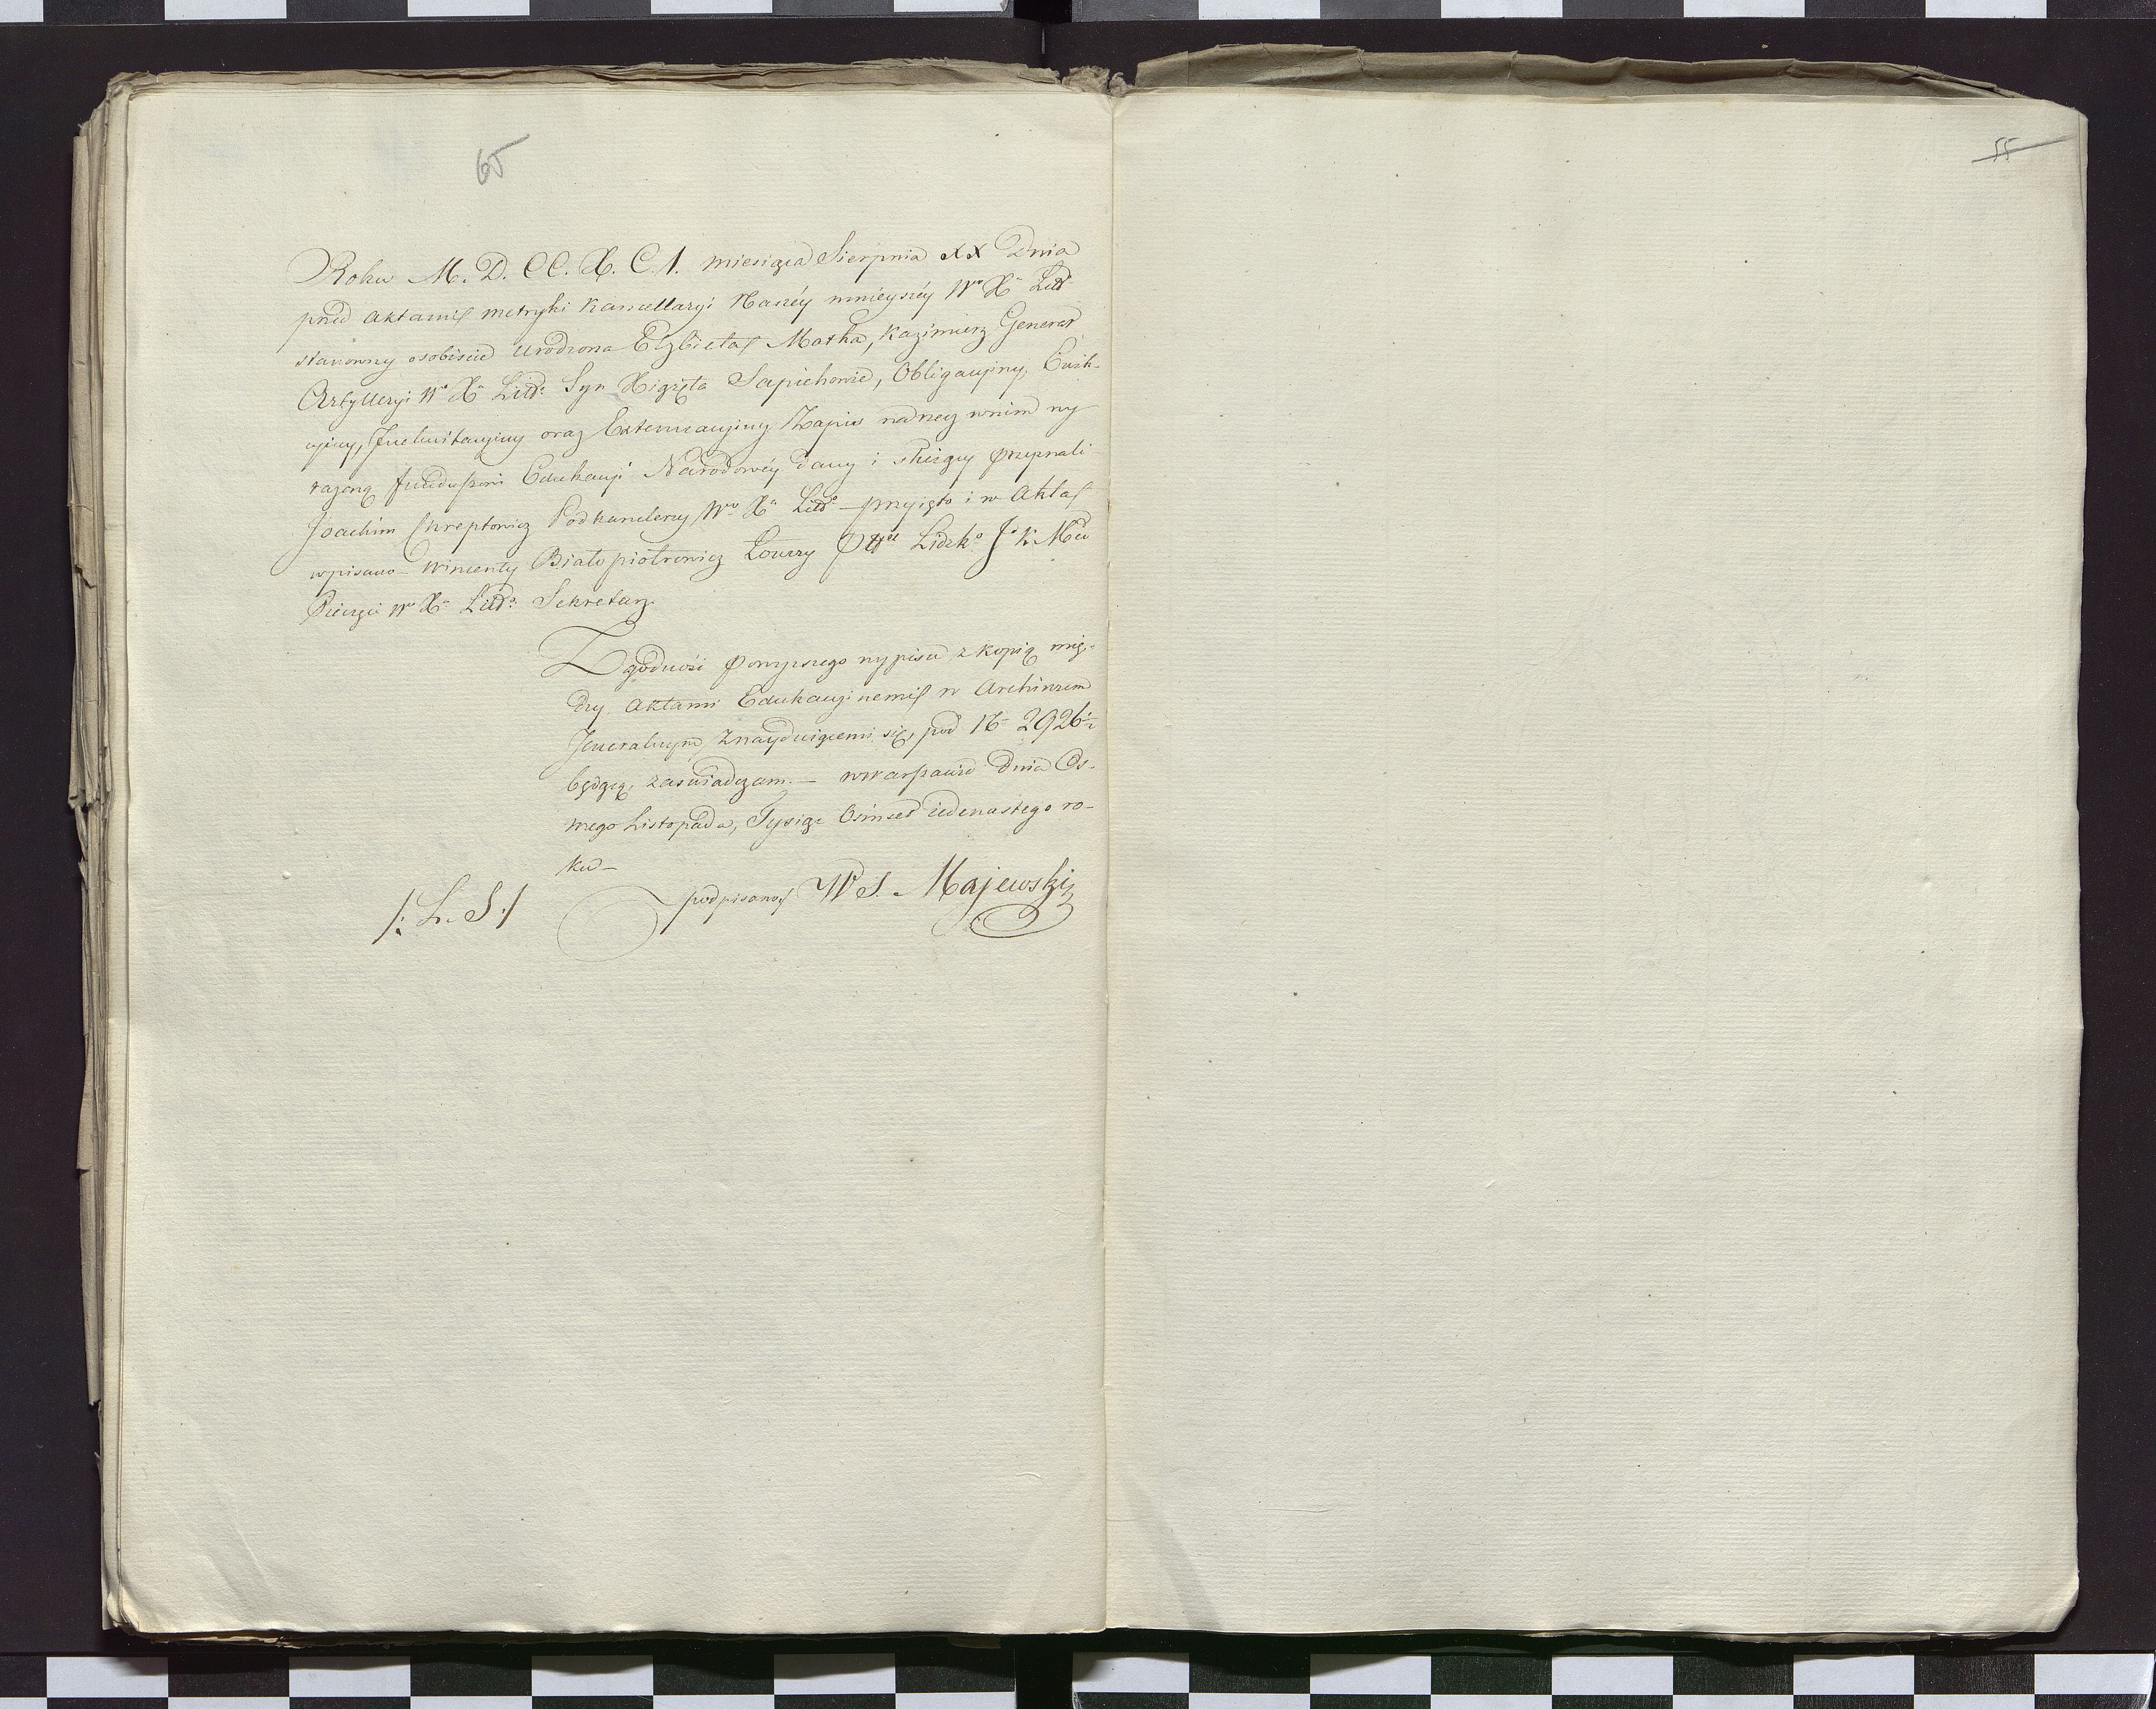 65
55
Roku M. D. CC. X. C. 1. miesiąca Sierpnia XX Dnia
przed aktami metryki kancellaryi Naszéy mnieyszéy Wo Xa Littº
stanowszy osobiście urodzona Elżbieta Matka, Kazimierz Generał
Artylleryi Wo Xa Littº Syn Xiążęta Sapiehowie, Obligacyiny, Ewik-
cyiny, Inekwitacyiny oraz Extenuacyiny Zapis na rzecz w nim wy
rażoną funduszowi Edukacyi Narodowéy dany i służący przyznali
Joachim Chreptowicz Podkanclerzy Wo Xa Littº – przyięto i w Akta
wpisano – Wincenty Białopiotrowicz Łowczy Pttu Lidzkº Jº K Mci
Pieczęci Wo Xa Littº Sekretarz.
Zgodność powyższego wypisu z kopią mię-
dzy Aktami Edukacyinemi w Archiwum
Jeneralnym znayduiącemi się, pod Nº 2926
będącą, zaświadczam. – w Warszawie Dnia Os-
mego Listopada, Tysiąc Ośmset iedenastego ro-
ku –
/: L. S :/ podpisano W S. Majewski